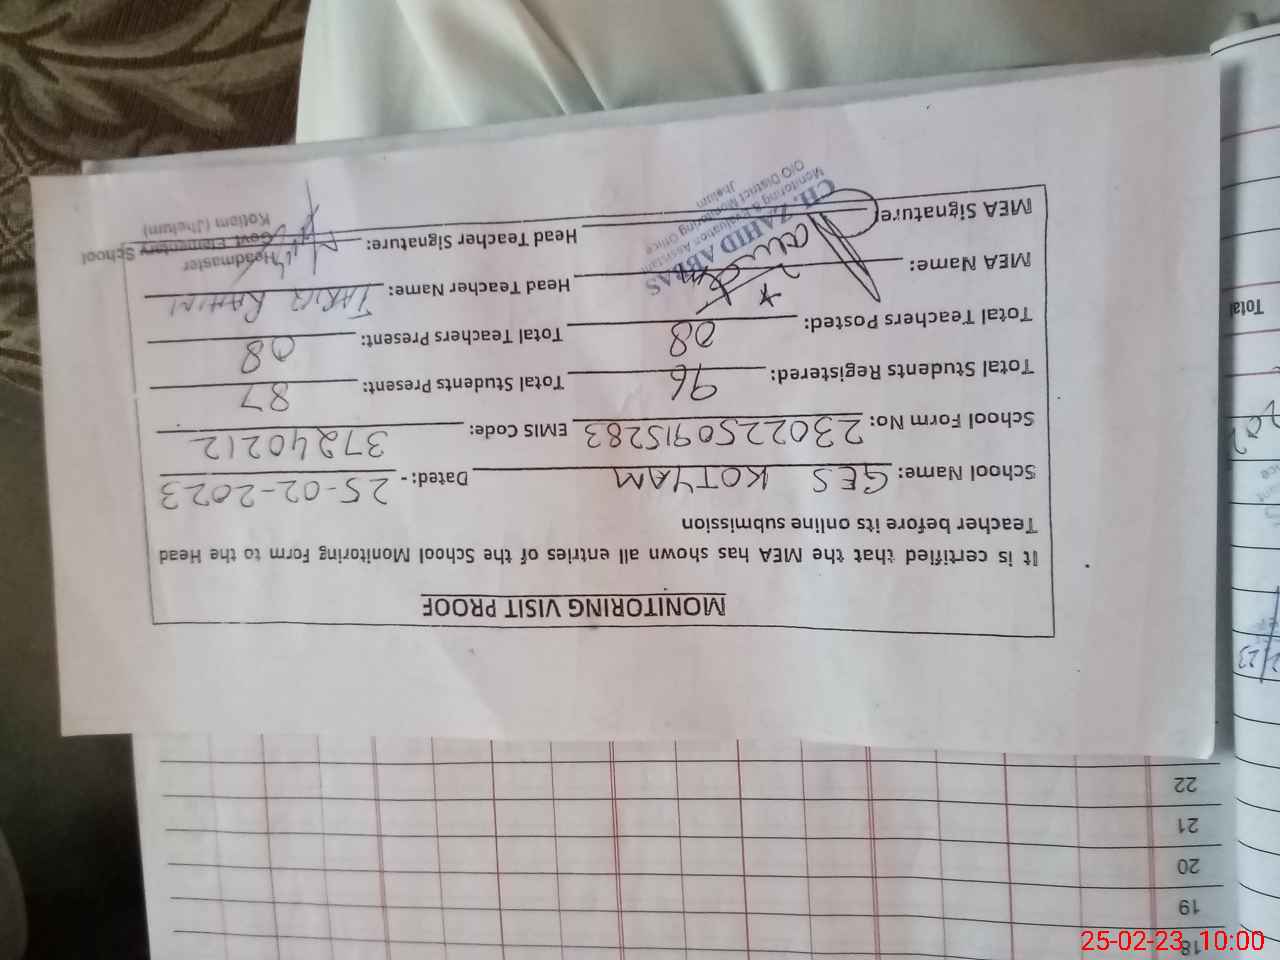 MONITORING VISIT PROOF
It is certified that the MEA has shown all entries of the School Monitoring Form to the Head
Teacher before its online submission
School Name: GES KOTYAM Dated:- 25-02-2023
School Form No: 230225091 5283 EMIS Code: 37240212
Total Students Registered: 96 Total Students Present: 87
Total Teachers Posted: 08 Total Teachers Present: 08
MEA Name: Head Teacher Name: TARIQ RAHIM
MEA Signature: Head Teacher Signature:
CH. ZAHID ABBAS
Monitoring & Evaluation Assistant
O/O District Monitoring Office
Jhelum
Headmaster
Govt. Elementary School
Kotiam (Jhelum)
Total
22
21
20
19
18
25-02-23 10:00